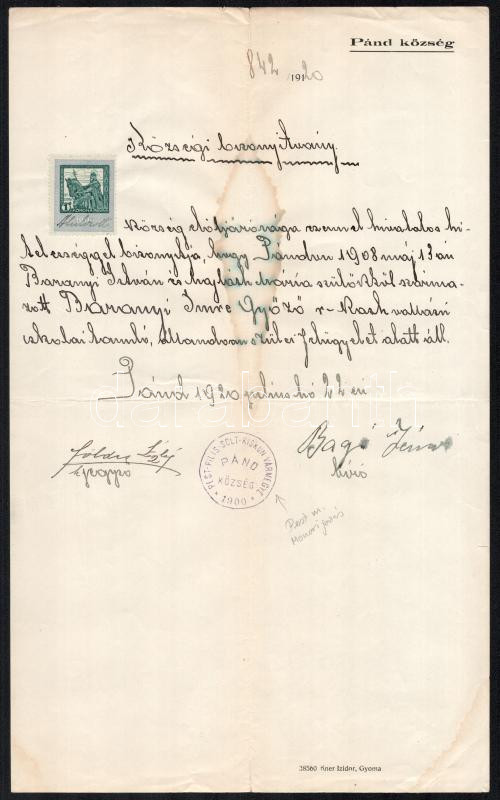 Pánd község
842/1920
Községi bizonyítvány.
Község elöljárósága ezennel hivatalos hi-
telességgel bizonyítja, hogy Pándon 1908 máj 13 án
Baranyi István és Mária szülőktől szárma-
zott Baranyi Imre Győző r. kath vallású
iskolai tanuló, állandóan szülei felügyelet alatt áll.
Pánd 1920 hó 22 én
jegyző
Bagó János
bíró
PEST-PILIS-SOLT-KISKUN VÁRMEGYE
PÁND
KÖZSÉG
1900
Pest m.
Monori járás
38560 Kner Izidor, Gyoma
darabanth